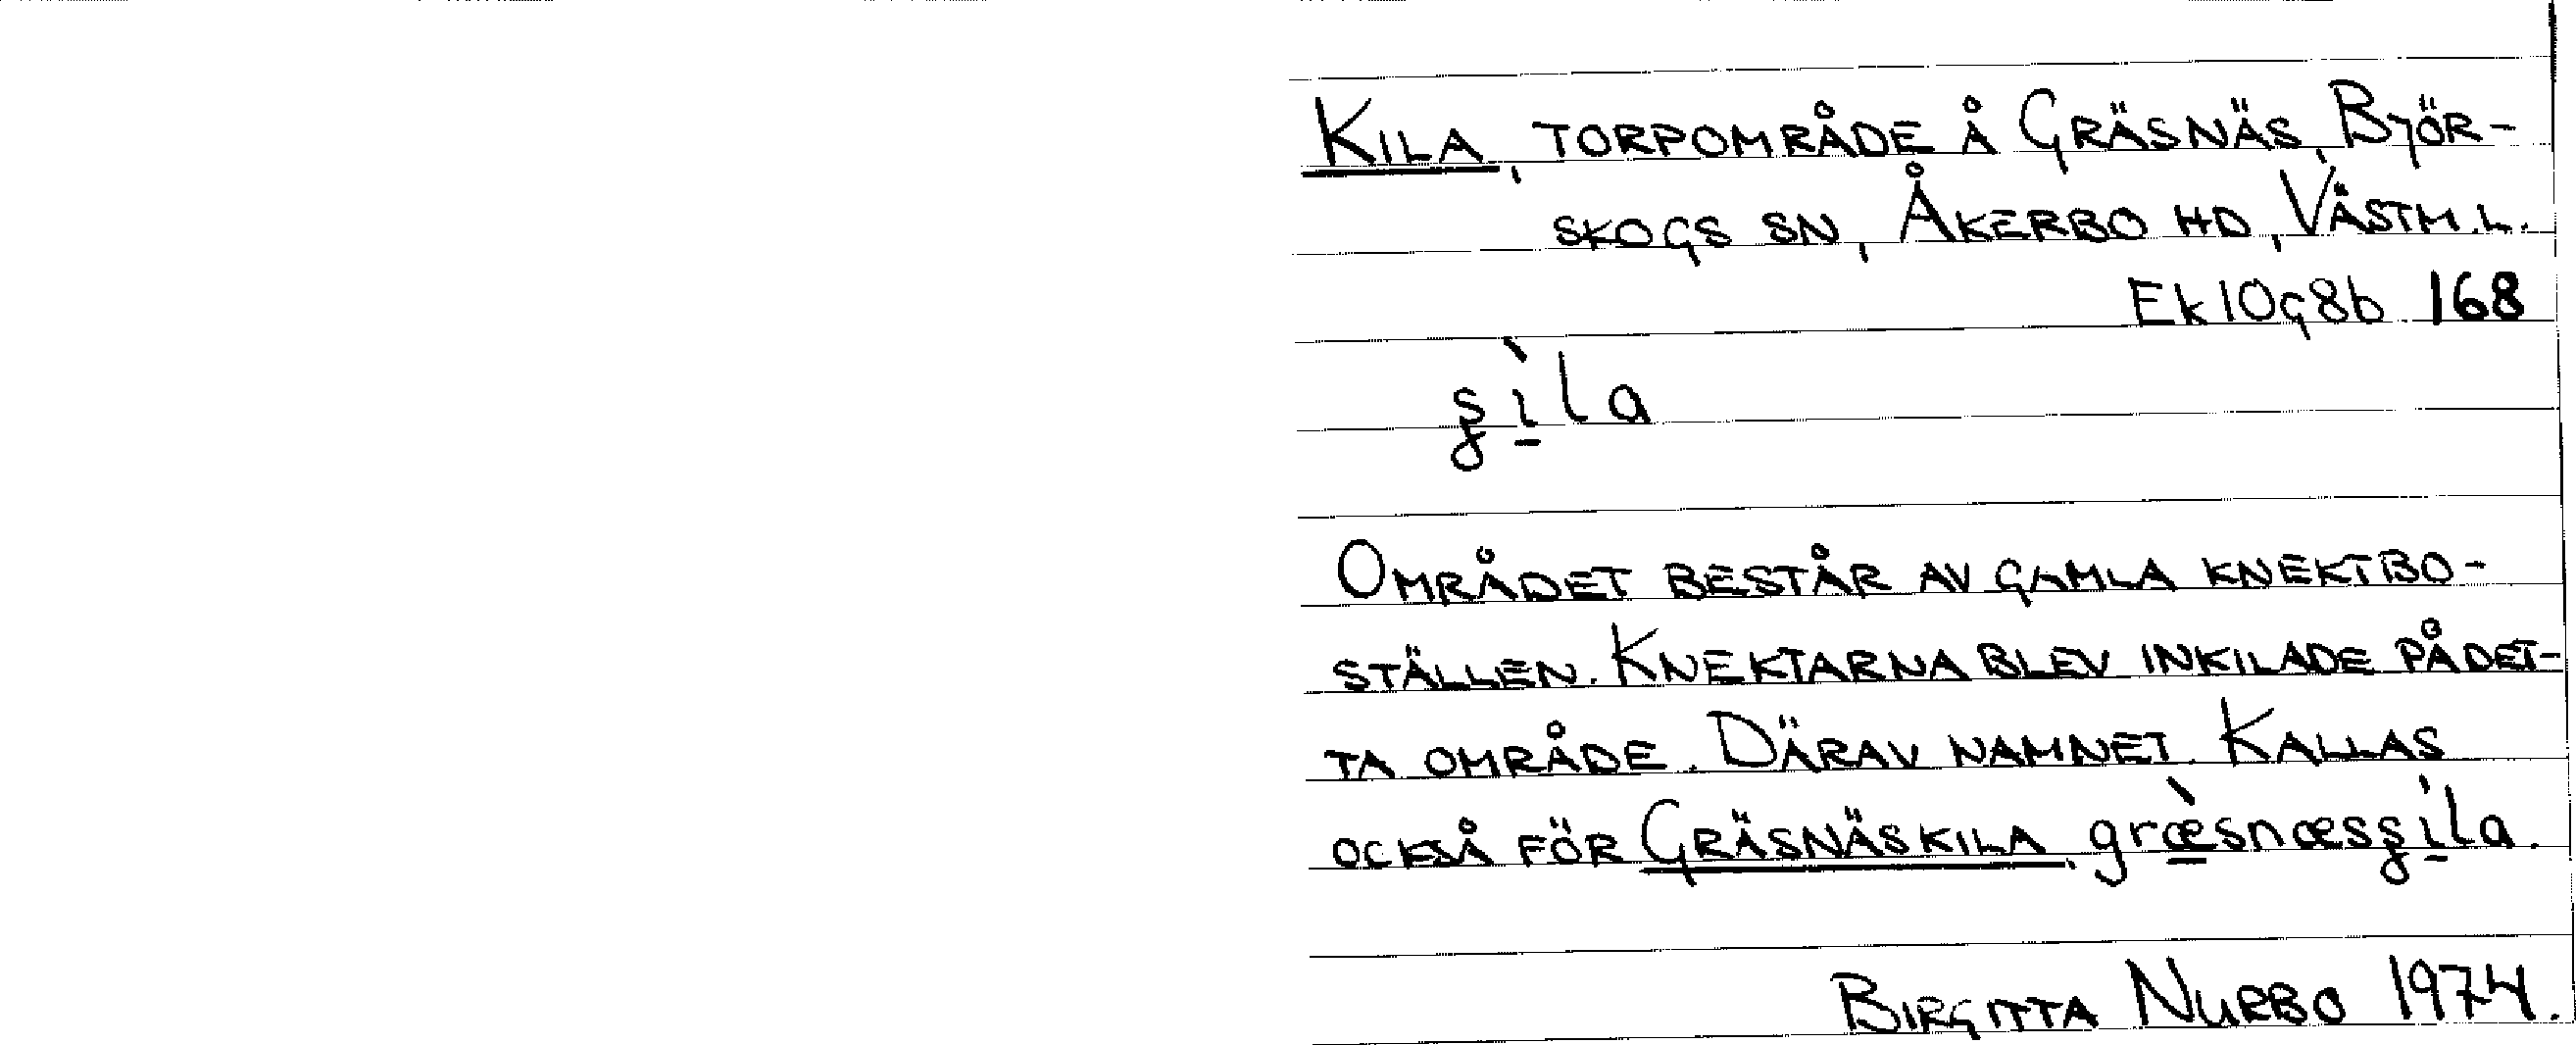 KILA, TORPOMRÅDE Å GRÄSNÄS, BJÖR-
SKOGS SN, ÅKERBO HD, VÄSTM.L.
Ek 10g8b 168
ʂ̀ila
OMRÅDET BESTÅR AV GAMLA KNEKTBO-
STÄLLEN. KNEKTARNA BLEV INKILADE PÅ DET-
TA OMRÅDE. DÄRAV NAMNET. KALLAS
OCKSÅ FÖR GRÄSNÄSKILA, græ̀snæsʂila.
BIRGITTA NURBO 1974.